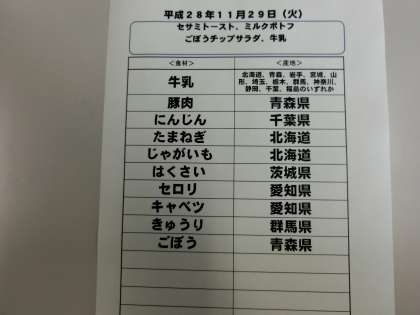 平成28年11月29日(火)
セサミトースト、ミルクポトフ
ごぼうチップサラダ、牛乳
<食材> <産地>
牛乳 北海道、青森、岩手、宮城、山
形、埼玉、栃木、群馬、神奈川、
静岡、千葉、福島のいずれか
豚肉 青森県
にんじん 千葉県
たまねぎ 北海道
じゃがいも 北海道
はくさい 茨城県
セロリ 愛知県
キャベツ 愛知県
きゅうり 群馬県
ごぼう 青森県